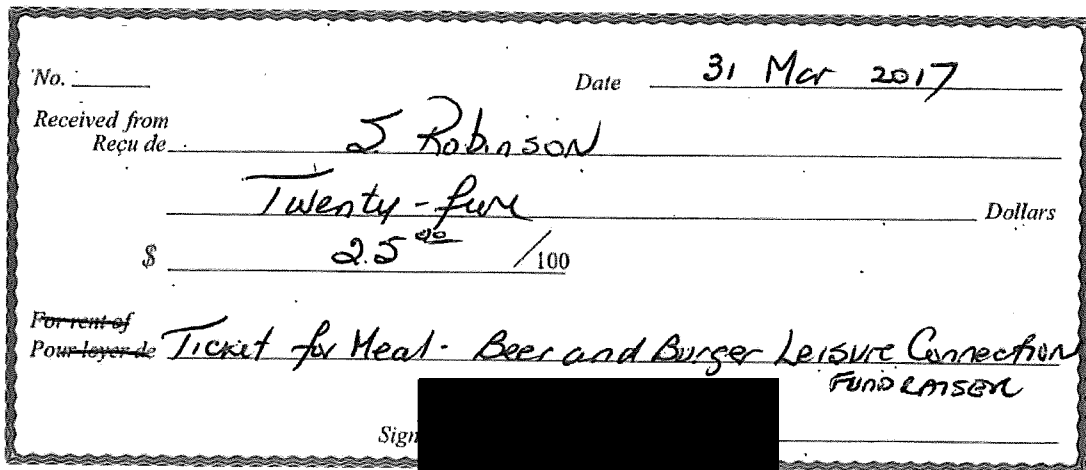 No. Date 31 Mar 2017
Received from
Reçu de J Robinson
Twenty-five Dollars
$ 25 00 /100
For rent of
Pour loyer de Ticket for Meal - Beer and Burger Leisure Connection
FUNDRAISER
Sign